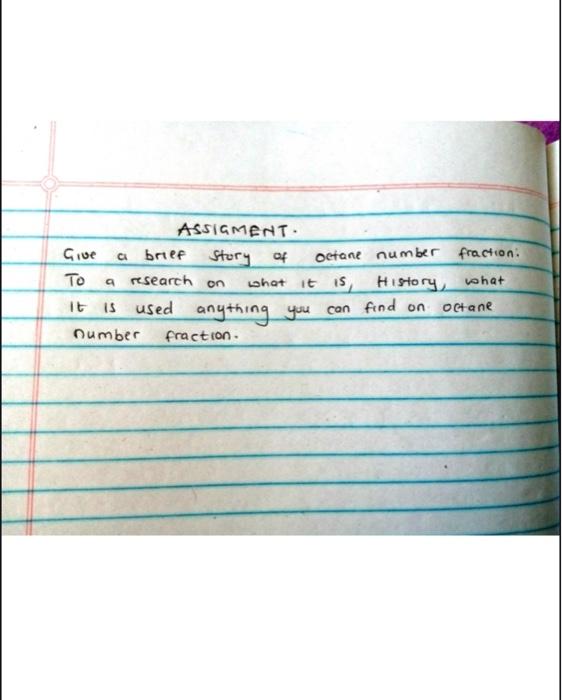 ASSIGMENT.
Give a brief story of octane number fraction:
To a research on what it is, History, what
it is used anything you can find on octane
number fraction.